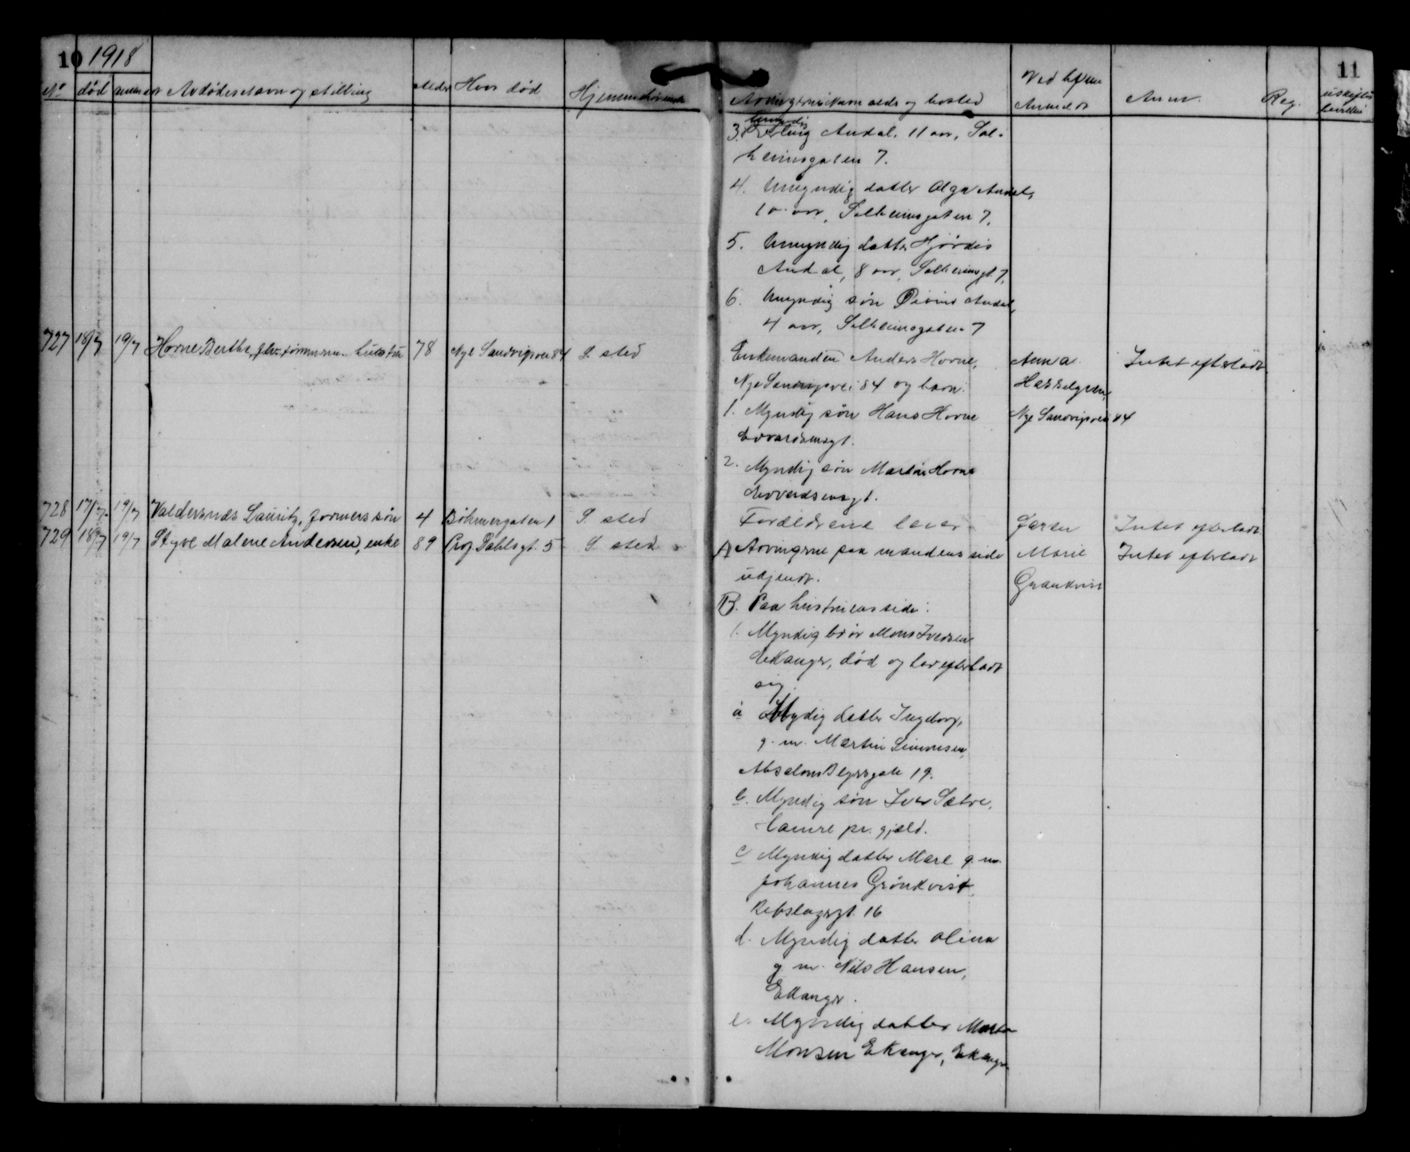 10 1918
No død anmeldt Avdødes navn og stilling alder Hvor død Hjemmehørende
727 18/7 19/7 Horne Berthe, 78 Nye Sandvigsvei 84 S. sted
728 17/7 19/7 Valdersnes Lauritz, formers søn 4 Bøhmergaten 1 S. sted
729 18/7 19/7 Styve Malene Andersen, enke 89 Prof. Dahlsgt 5 S. sted
11
Arvingernes navn alder og bosted Anmeldt Anm. Reg.
3. Umyndig Erling Andal, 11 aar, Sol-
heimsgaten 7.
4. Umyndig datter Olga Andal,
10 aar, Solheimsgaten 7.
5. Umyndig datter Hjørdis
Andal, 8 aar, Solheimsgt 7.
6. Umyndig søn Øivind Andal,
4 aar, Solheimsgaten 7
Enkemanden Anders Horne, Anna Intet efterladt
Nye Sandvigsvei 84 og barn: Hesselgren,
1. Myndig søn Hans Horne Nye Sandvigsvei 84
Edvardsensgt.
2. Myndig søn Martin Horne
Edvardsensgt.
Forældrene lever. Faren Intet efterladt
A Arvingerne paa mandens side Marie Intet efterladt
ukjendt. Grønkvist
B. Paa hustruens side:
1. Myndig bror Mons Iversen
Eikanger, død og har efterladt
sig
a Myndig datter Ingeborg,
g. m. Martin Simonsen,
Absalon Beyersgate 19.
b. Myndig søn Iver Sætre,
Hamre pr. gjeld.
c Myndig datter Mare g. m.
Johannes Grönkvist,
Rebslagergt. 16
d. Myndig datter Olina
g. m. Nils Hansen,
Eikanger.
e. Myndig datter Marta
Monsen Eikanger, Eikanger